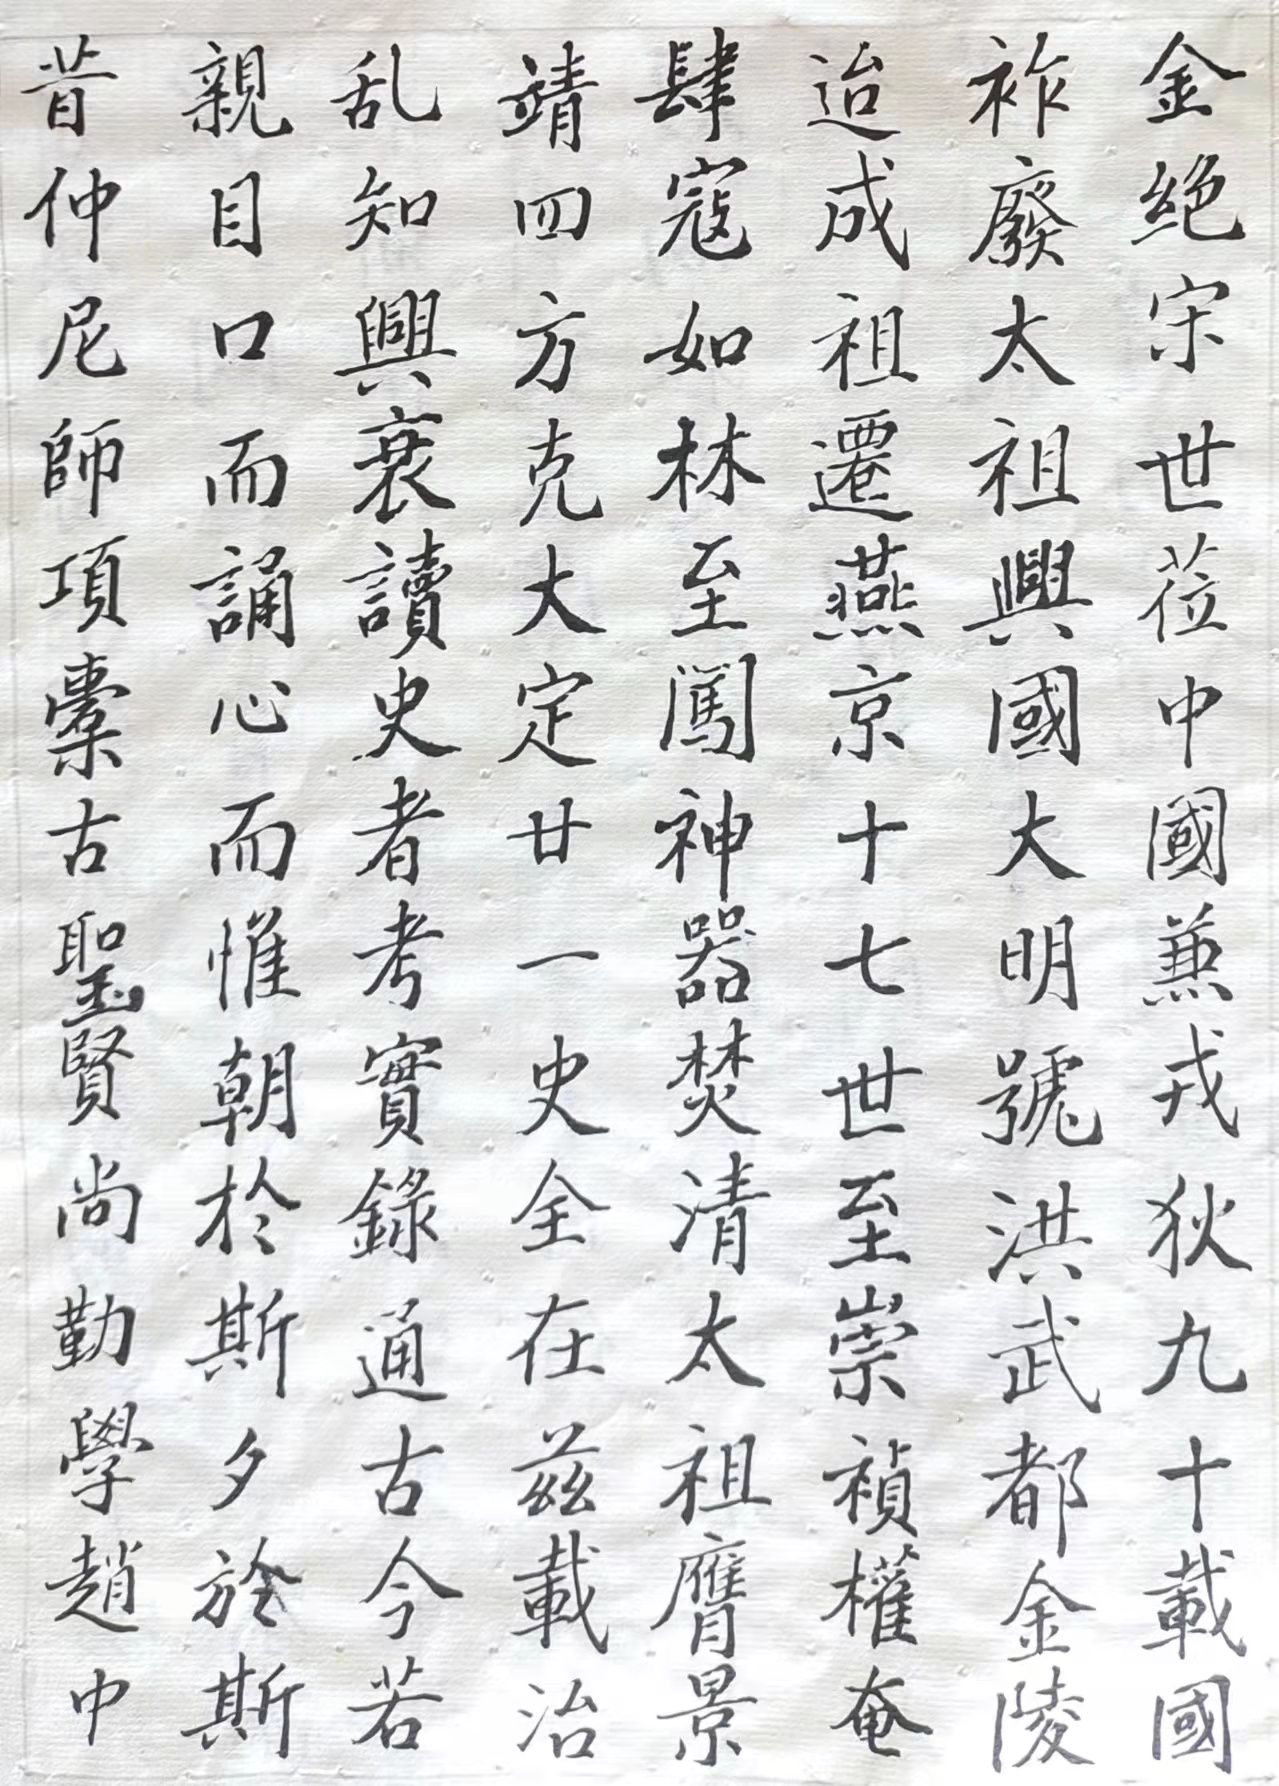 金絕宋世莅中國兼戎狄九十載國
祚廢太祖興國大明號洪武都金陵
迨成祖遷燕京十七世至崇禎權奄
肆寇如林至闖神器焚清太祖膺景
靖四方克大定廿一史全在茲載治
乱知興衰讀史者考實錄通古今若
親目口而誦心而惟朝於斯夕於斯
昔仲尼師項橐古聖賢尚勤學趙中